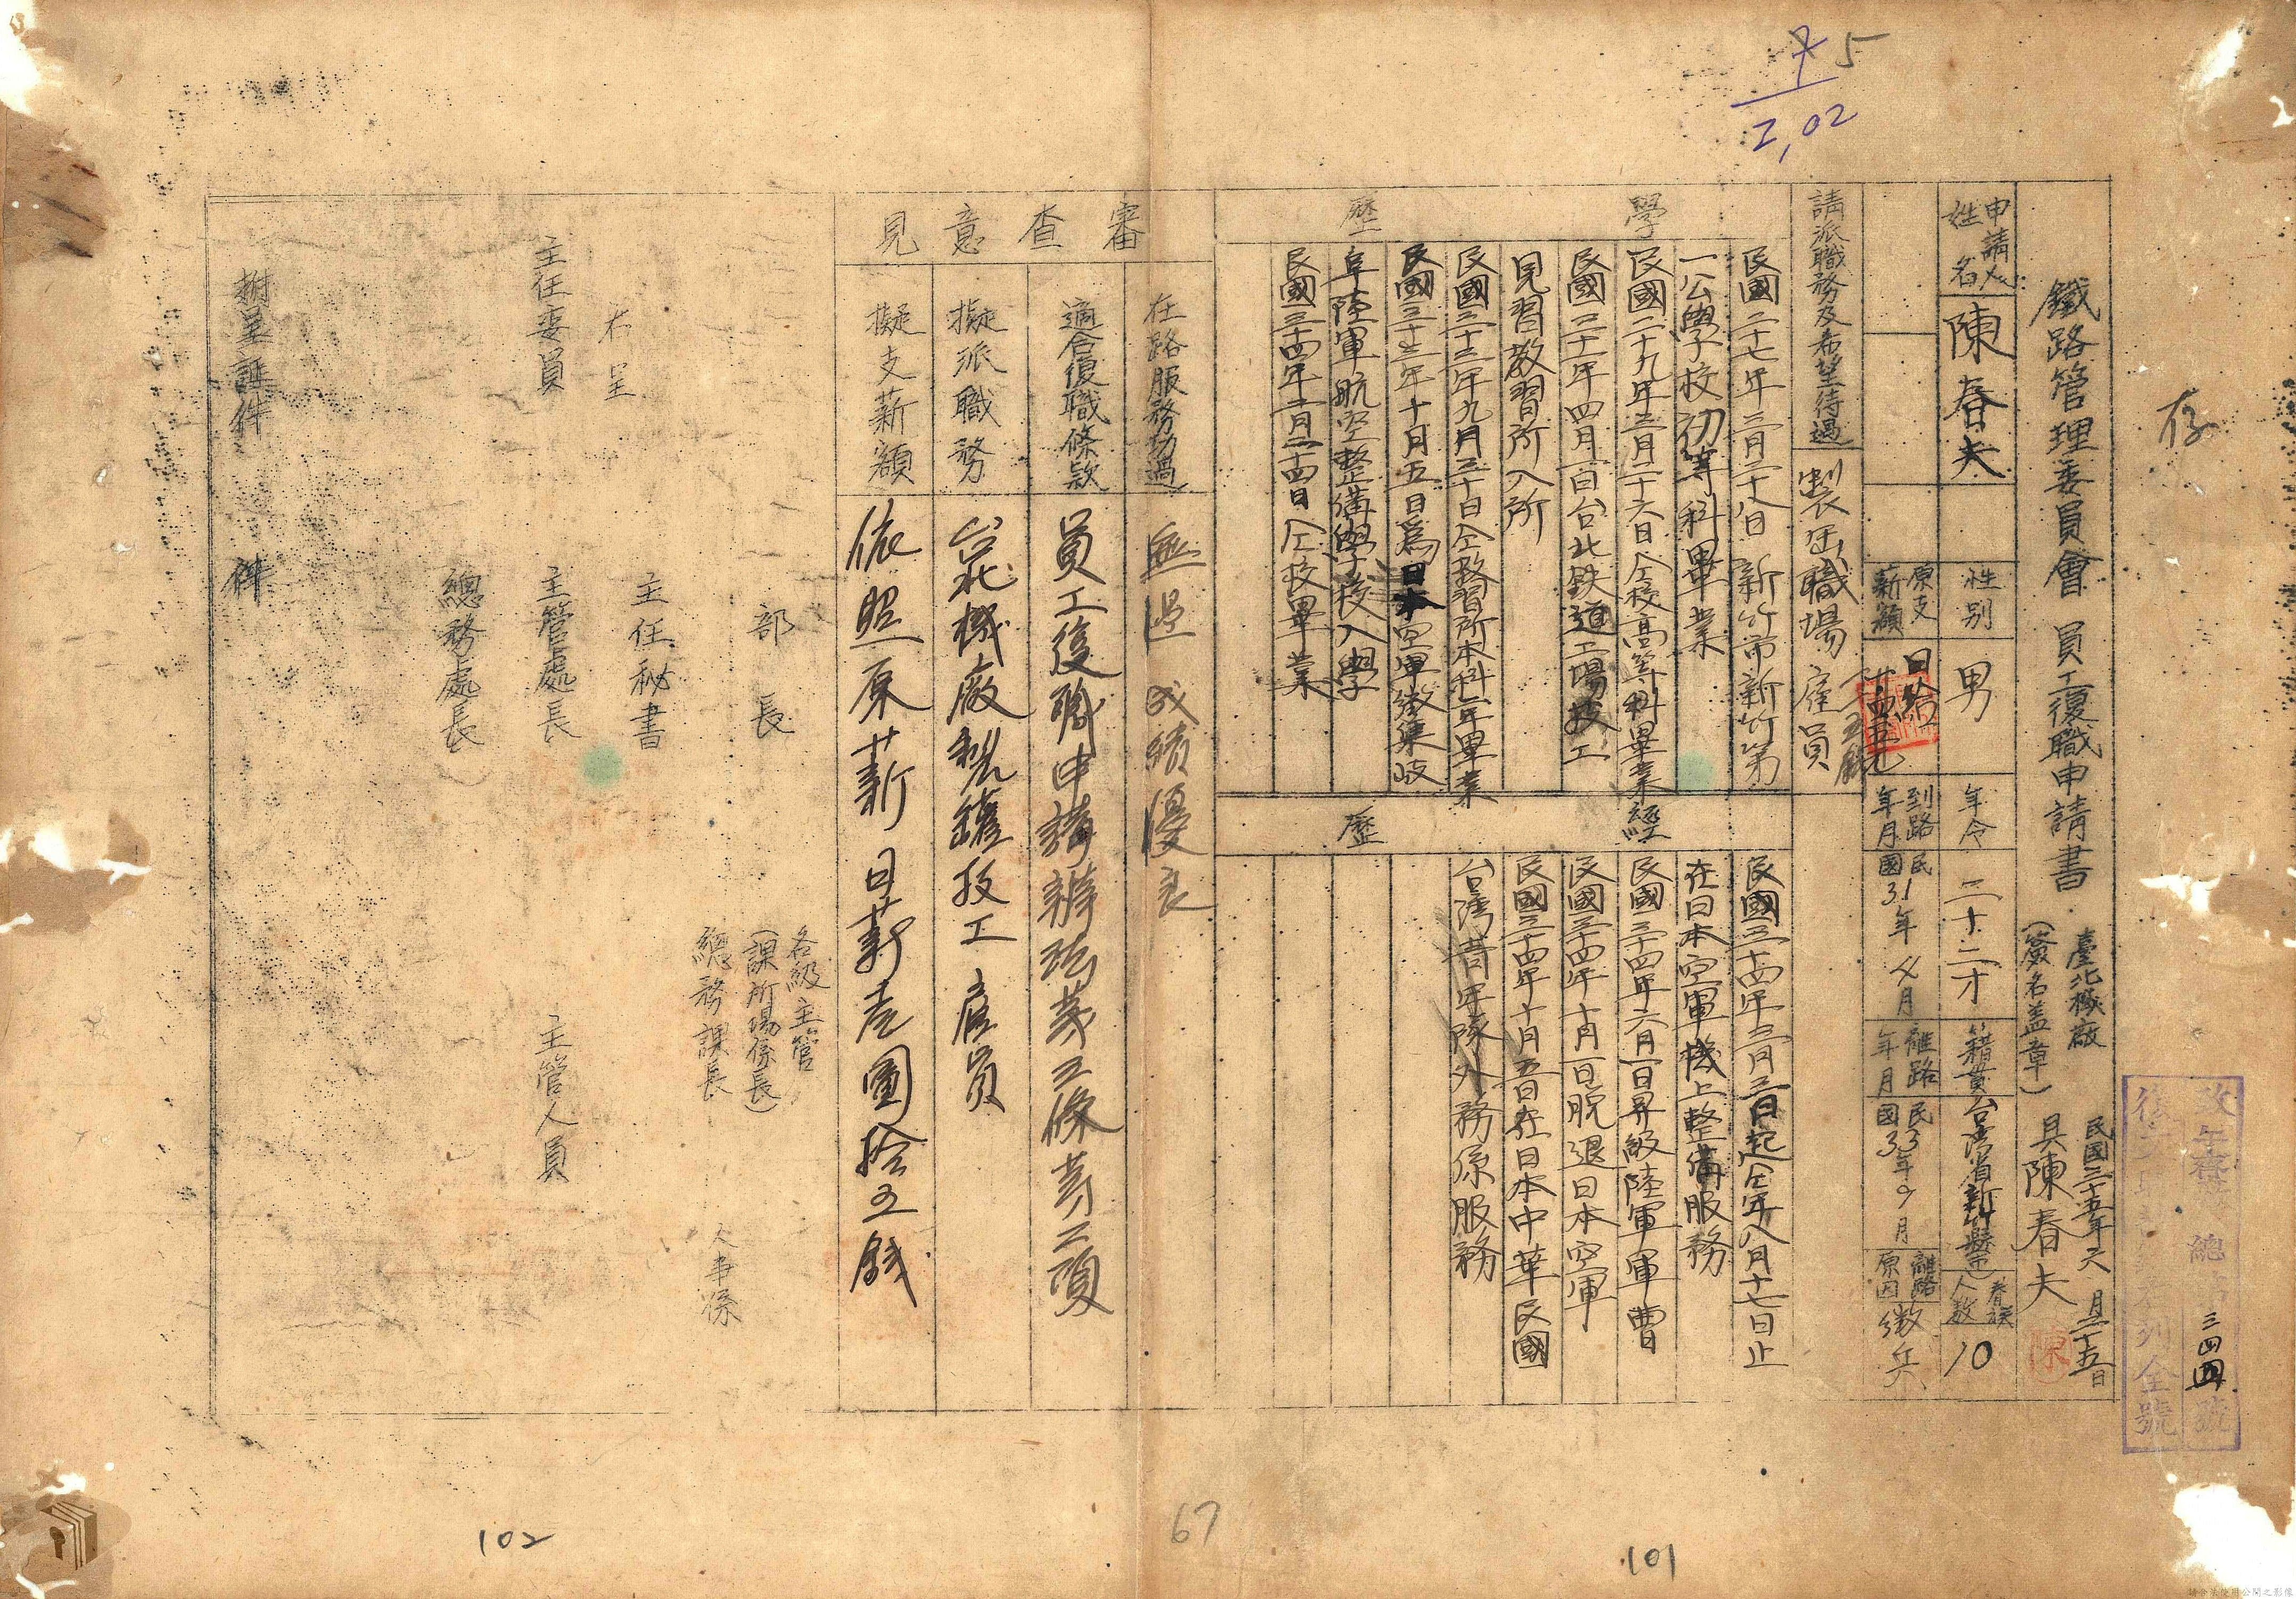 存
7 5
2,02
鐵路管理委員會 員工復職申請書
臺北機廠
(簽名盖章)
民國三十五年六月二十五日
具陳春夫
陳
總
三四四
號
列全號
申請人姓名
陳春夫
性別
男
年令
二十二才
籍貫
台灣省新
眷族人数
10
原支薪額
日給
到路年月
民國31年4月
離路年月
民國33年9月
離路原因
徵兵
請派職務及希望待遇
製缶職場 雇員
學歷
民國二十七年三月二十八日 新竹市新竹第
一公學校初等科畢業
民國二十九年三月二十六日仝校高等科畢業
民國三十一年四月一日台北鉄道工場技工
見習教習所入所
民國三十三年九月三十日仝教習所本科二年畢業
民國三十三年十月五日為日本空軍徵集岐
阜陸軍航空整備學校入學
民國三十四年二月二十四日仝校畢業
經歷
民國三十四年三月三日起仝年八月十七日止
在日本空軍機上整備服務
民國三十四年六月一日昇級陸軍軍曹
民國三十四年十月一日脫退日本空軍
民國三十四年十月五日在日本中華民國
台湾青年隊外務係服務
審查意見
在路服務功過
無過 成績優良
適合復職條款
員工復職申請辦法第三條第二項
擬派職務
台北機廠製罐技工 雇員
擬支薪額
依照原薪日薪壱圓拾五錢
部長
各級主管
(課所場係長)
總務課長
人事係
右呈
主任秘書
主任委員
主管處長
主管人員
總務處長
附呈證件 件
102
67
101